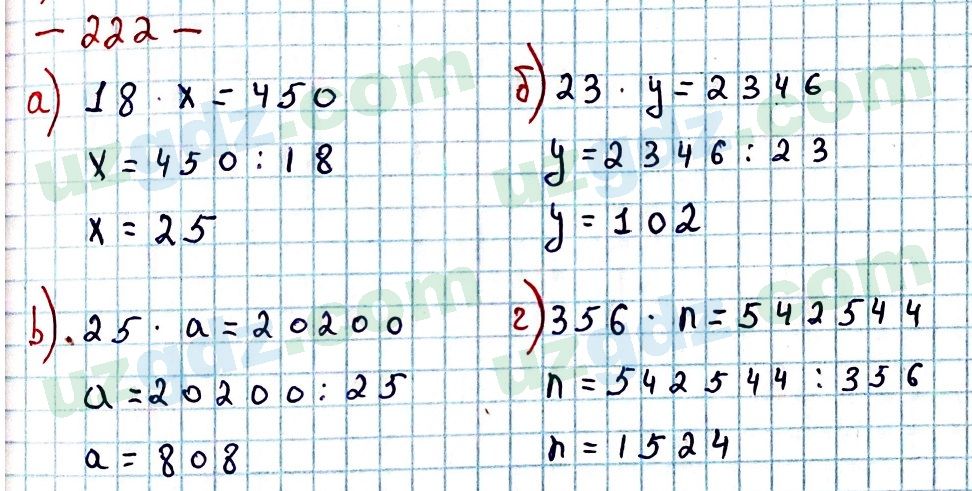 — 222 —
а) 18 · x = 450
x = 450 : 18
x = 25
б) 23 · y = 2346
y = 2346 : 23
y = 102
в). 25 · a = 20200
a = 20200 : 25
a = 808
г) 356 · n = 542544
n = 542544 : 356
n = 1524
uzgdz.com
uzgdz.com
uzgdz.com
uzgdz.com